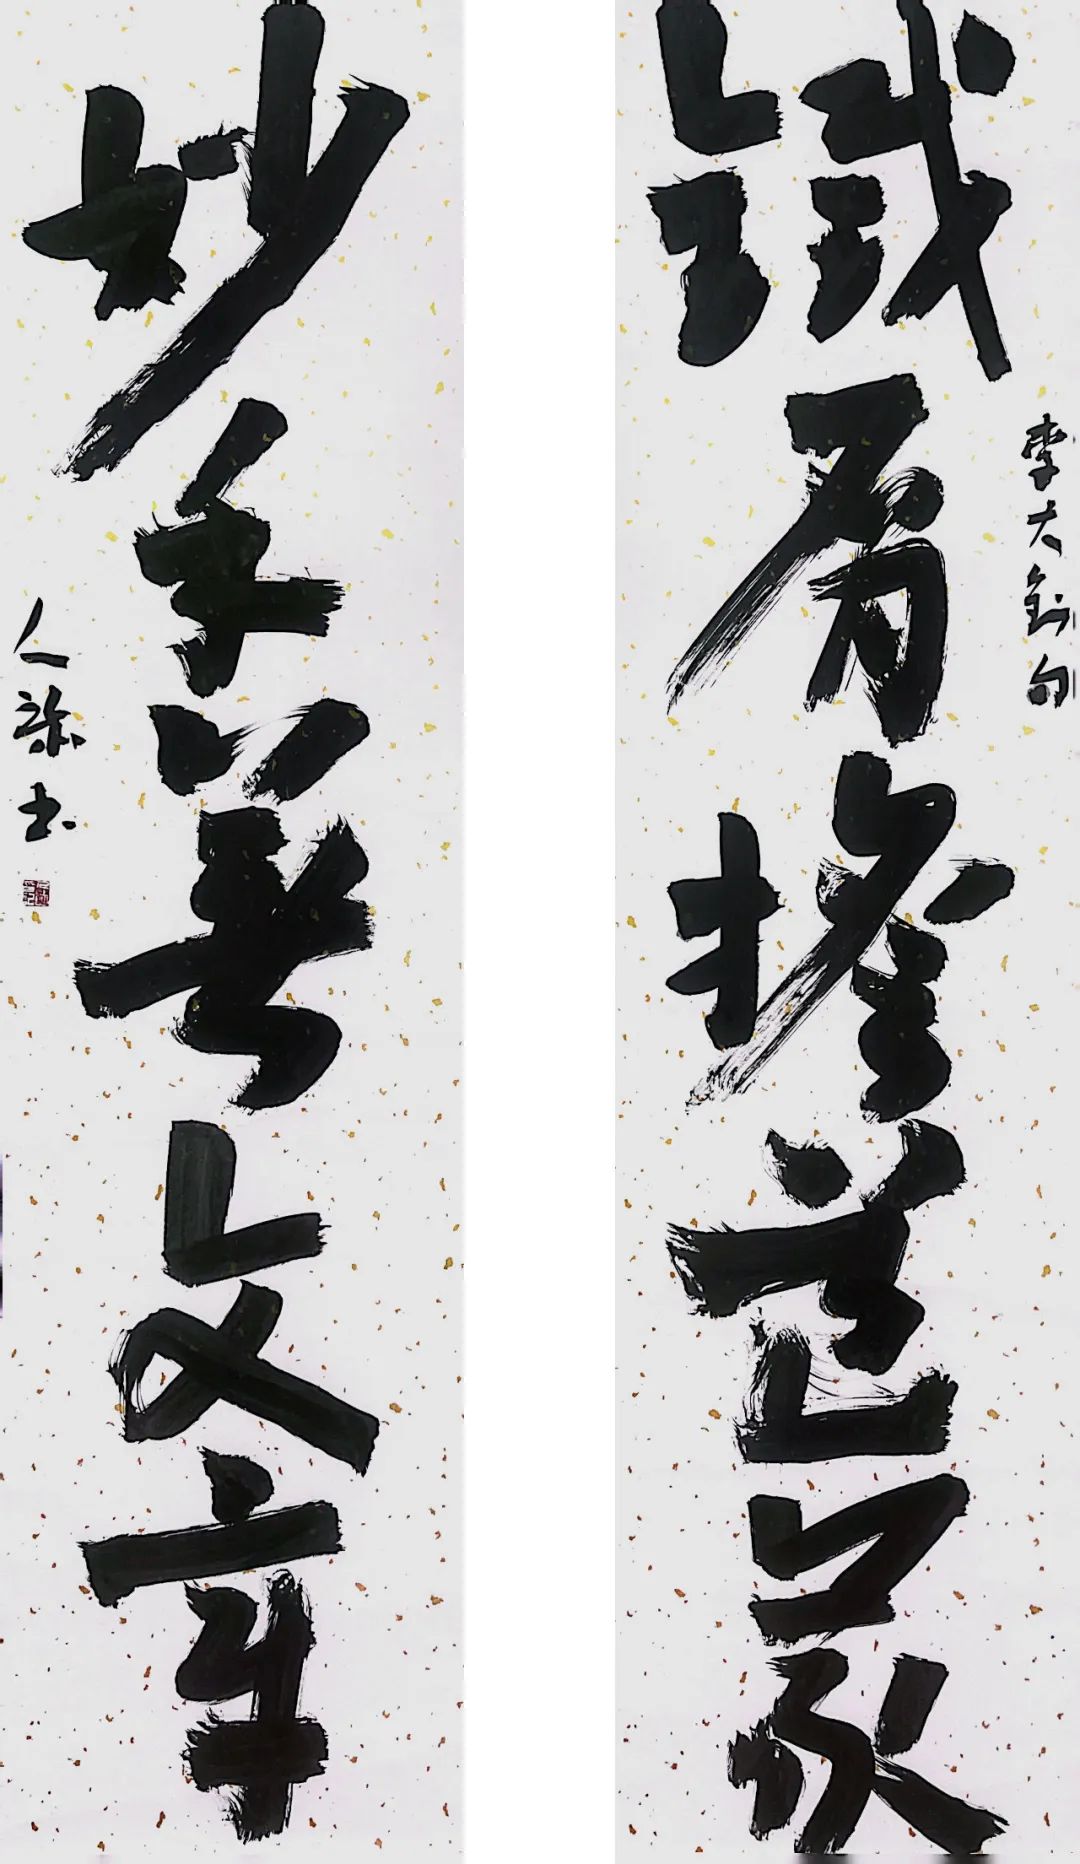 鐵肩擔道義
李大釗句
妙手著文章
人
书